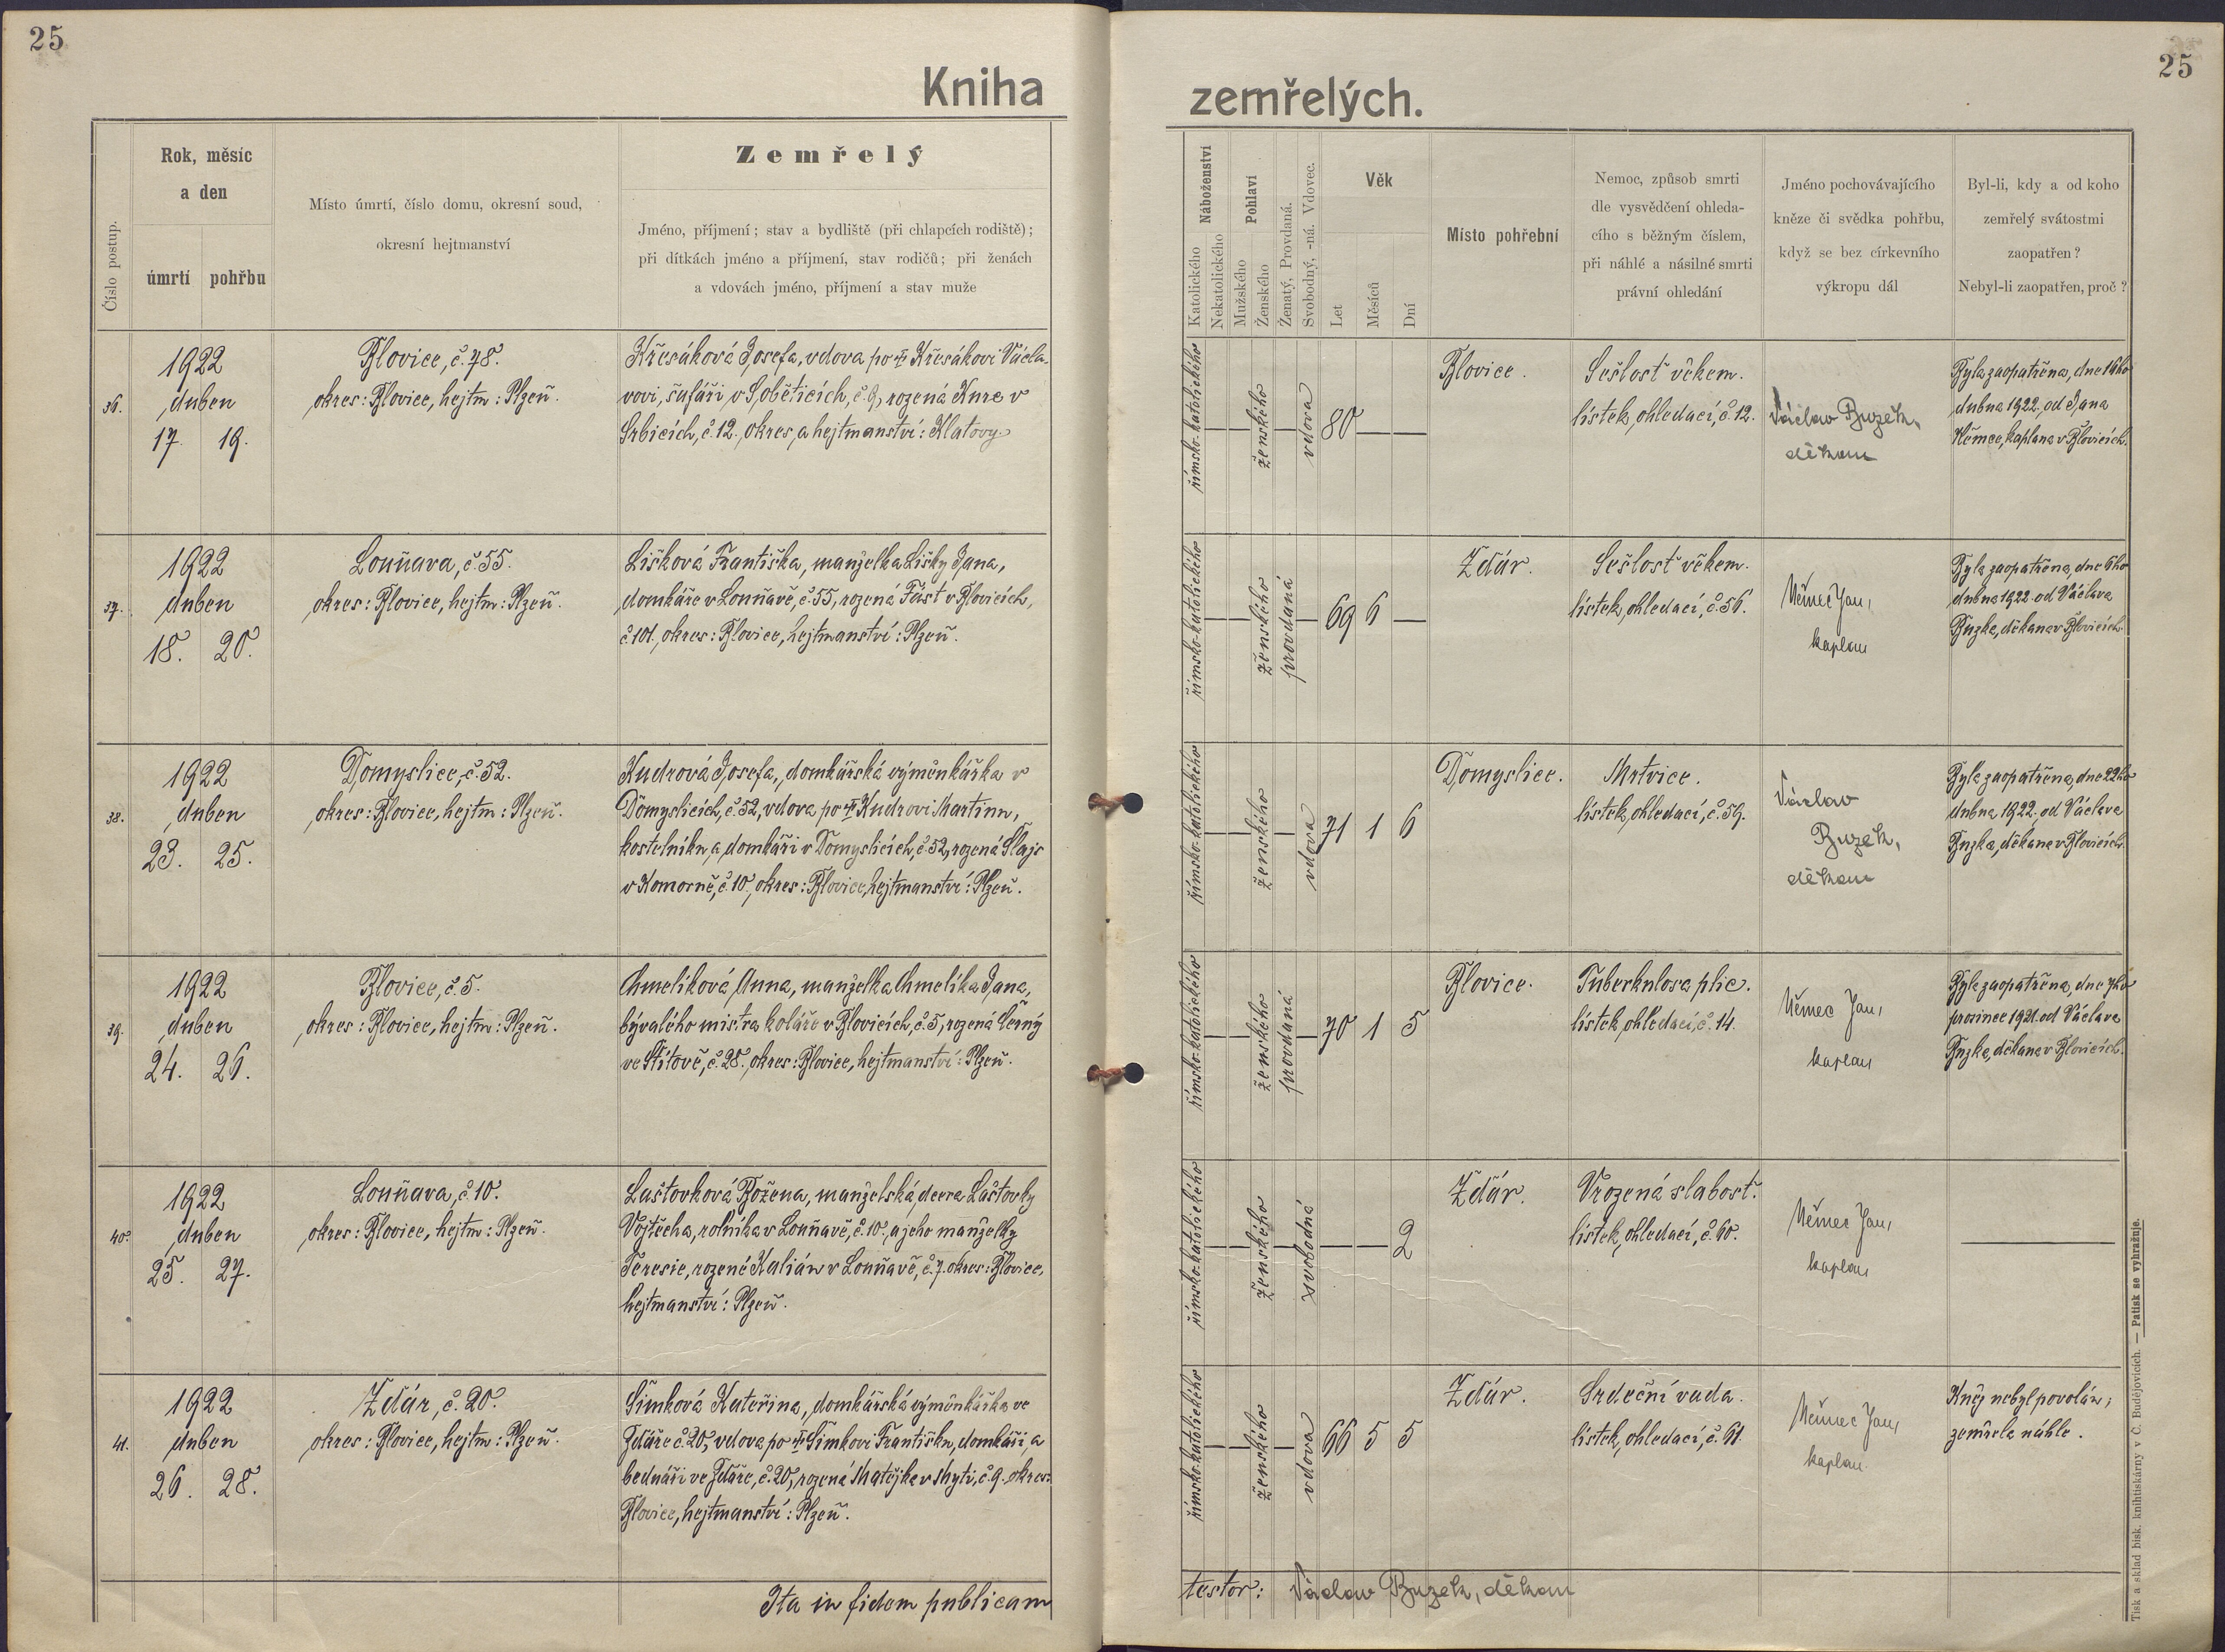 25
25
Kniha
zemřelých.
Číslo postup.
Rok, měsíc
a den
úmrtí
pohřbu
Místo úmrtí, číslo domu, okresní soud,
okresní hejtmanství
Zemřelý
Jméno, příjmení; stav a bydliště (při chlapcích rodiště);
při dítkách jméno a příjmení, stav rodičů; při ženách
a vdovách jméno, příjmení a stav muže
Náboženství
Katolického
Nekatolického
Pohlaví
Mužského
Ženského
Ženatý, Provdaná.
Svobodný, -ná. Vdovec.
Věk
Let
Měsíců
Dní
Místo pohřební
Nemoc, způsob smrti
dle vysvědčení ohleda-
cího s běžným číslem,
při náhlé a násilné smrti
právní ohledání
Jméno pochovávajícího
kněze či svědka pohřbu,
když se bez církevního
výkropu dál
Byl-li, kdy a od koho
zemřelý svátostmi
zaopatřen?
Nebyl-li zaopatřen, proč?
36.
1922
duben
17. 19.
Blovice, č. 78.
okres: Blovice, hejtm: Plzeň.
Křesáková Josefa, vdova po † Křesákovi Václa-
vovi, šafáři v Soběticích, č. 9, rozená Kunc v
Srbicích, č. 12., okres a hejtmanství: Klatovy.
římsko-katolického
ženského
vdova
80
Blovice.
Sešlost věkem.
lístek ohledací, č. 12.
Václav Buzek,
děkan
Byla zaopatřena, dne 16ho
dubna 1922, od Jana
Němce, kaplana v Blovicích.
37.
1922
duben
18. 20.
Louňava, č. 55.
okres: Blovice, hejtm: Plzeň.
Lišková Františka, manželka Lišky Jana,
domkáře v Louňavě, č. 55, rozená Fást v Blovicích,
č. 101, okres: Blovice, hejtmanství: Plzeň.
římsko-katolického
ženského
provdaná
69 6
Ždár.
Sešlost věkem.
lístek ohledací, č. 56.
Němec Jan,
kaplan
Byla zaopatřena, dne 6ho
dubna 1922. od Václava
Buzka, děkana v Blovicích.
38.
1922
duben
23. 25.
Domyslice, č. 52.
okres: Blovice, hejtm: Plzeň.
Kudrová Josefa, domkářská výměnkářka v
Domyslicích, č. 52, vdova po † Kudrovi Martinu,
kostelníku a domkáři v Domyslicích, č. 52, rozená Šlajs
v Komorně, č. 10., okres: Blovice, hejtmanství: Plzeň.
římsko-katolického
ženského
vdova
71 1 6
Domyslice.
Mrtvice.
lístek ohledací, č. 59.
Václav
Buzek,
děkan
Byla zaopatřena, dne 22ho
dubna 1922, od Václava
Buzka, děkana v Blovicích.
39.
1922
duben
24. 26.
Blovice, č. 5.
okres: Blovice, hejtm: Plzeň.
Chmelíková Anna, manželka Chmelíka Jana,
bývalého mistra koláře v Blovicích, č. 5, rozená Černý
ve Štítově, č. 28., okres: Blovice, hejtmanství: Plzeň.
římsko-katolického
ženského
provdaná
70 1 5
Blovice.
Tuberkulosa plic.
lístek ohledací, č. 14.
Němec Jan,
kaplan
Byla zaopatřena, dne 7ho
prosince 1921. od Václava
Buzka, děkana v Blovicích.
40.
1922
duben
25. 27.
Louňava, č. 10.
okres: Blovice, hejtm: Plzeň.
Laštovková Božena, manželská dcera Laštovky
Vojtěcha, rolníka v Louňavě, č. 10., a jeho manželky
Teresie, rozené Kalián v Louňavě, č. 7. okres: Blovice,
hejtmanství: Plzeň.
římsko-katolického
ženského
svobodná
2
Ždár.
Vrozená slabost.
lístek ohledací, č. 60.
Němec Jan,
kaplan
41.
1922
duben
26. 28.
Ždár, č. 20.
okres: Blovice, hejtm: Plzeň.
Šimková Kateřina, domkářská výměnkářka ve
Ždáře č. 20, vdova po † Šimkovi Františku, domkáři a
bednáři ve Ždáře, č. 20, rozená Matějka v Mýti, č. 9. okres:
Blovice, hejtmanství: Plzeň.
římsko-katolického
ženského
vdova
66 5 5
Ždár.
Srdeční vada.
lístek ohledací, č. 61.
Němec Jan,
kaplan
Kněz nebyl povolán;
zemřela náhle.
Ita in fidem publicam
testor: Václav Buzek, děkan
Tisk a sklad bisk. knihtiskárny v Č. Budějovicích. — Patisk se vyhražuje.